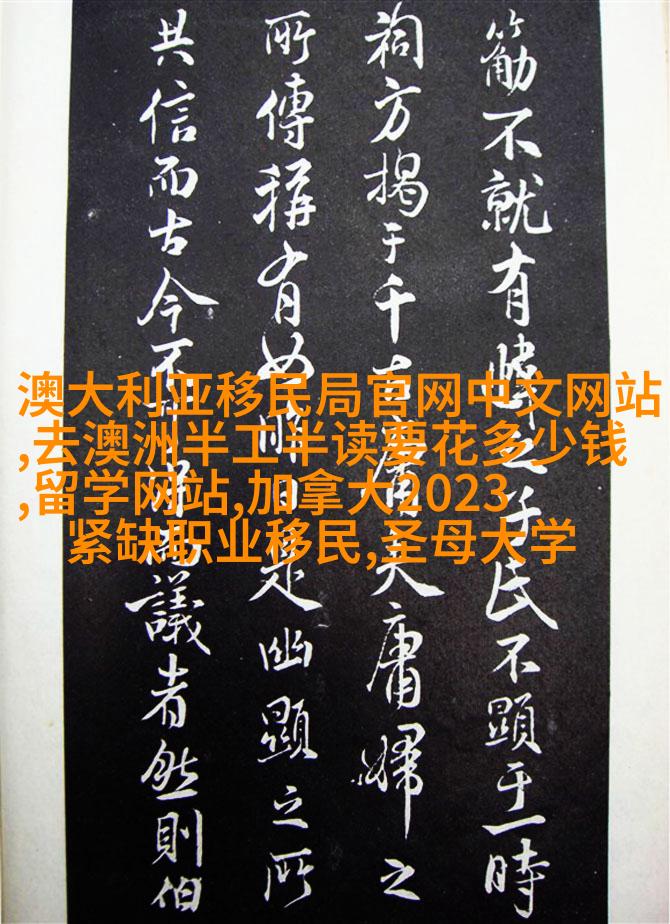 不就有之于民不顯于一時
祠方揭于千庸夫庸婦之
所傳稱有如日是幽顯之所
共信而古今不議者然則伯
澳大利亚移民局官网中文网站
,去澳洲半工半读要花多少钱
,留学网站,加拿大2023
紧缺职业移民,圣母大学